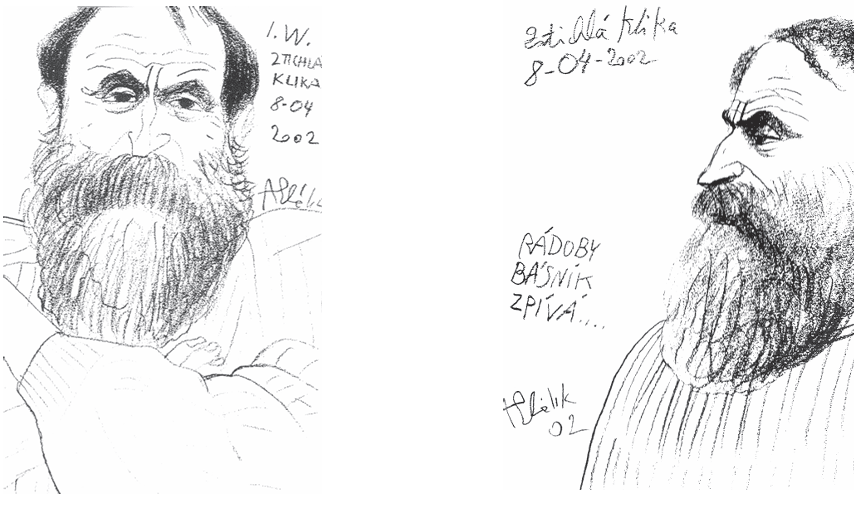 I.W.
ZTICHLÁ
KLIKA
8-04
2002
Ztichlá klika
8-04-2002
RÁDOBY
BÁSNÍK
ZPÍVÁ....
02